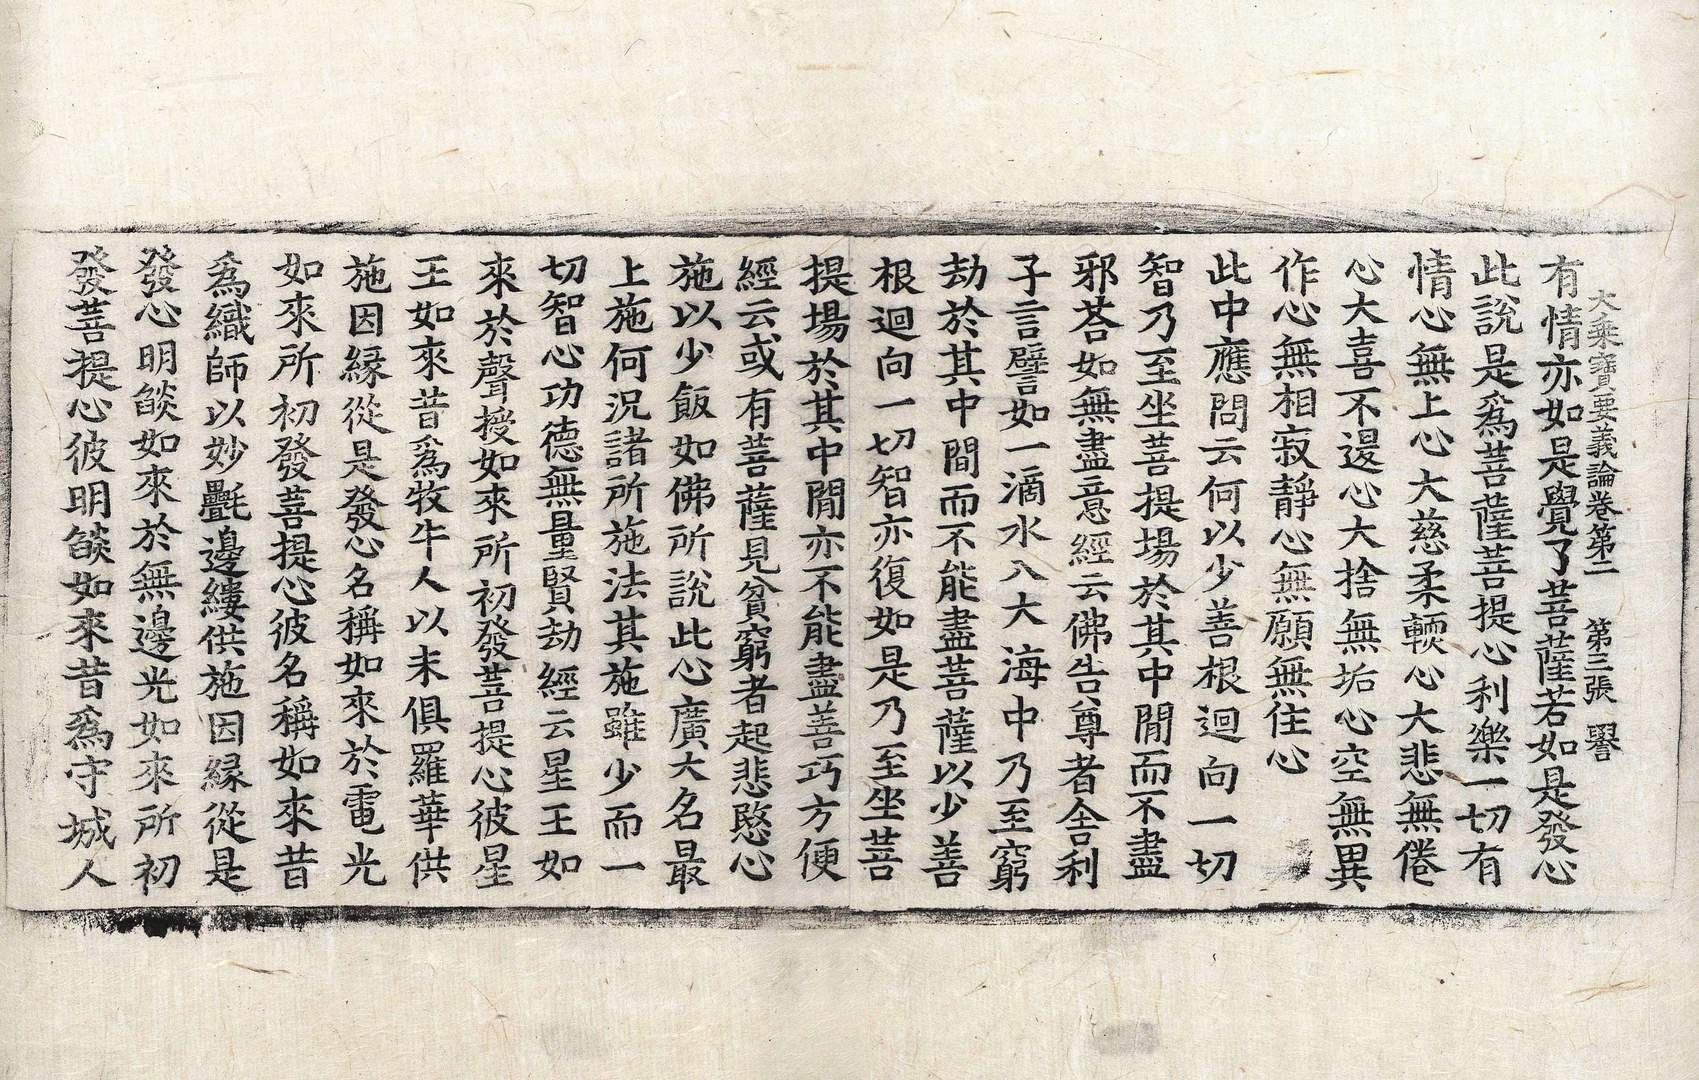 大乗寶要義論卷第二　第三張　譽
有情亦如是覺了菩薩若如是發心
此說是爲菩薩菩提心利樂一切有
情心無上心大慈柔輭心大悲無倦
心大喜不退心大捨無垢心空無異
作心無相寂靜心無願無住心
此中應問云何以少善根迴向一切
智乃至坐菩提場於其中間而不盡
邪荅如無盡意經云佛告尊者舍利
子言譬如一滴水入大海中乃至窮
劫於其中間而不能盡菩薩以少善
根迴向一切智亦復如是乃至坐菩
提場於其中間亦不能盡善巧方便
經云或有菩薩見貧窮者起悲愍心
施以少飯如佛所說此心廣大名最
上施何況諸所施法其施雖少而一
切智心功德無量賢劫經云星王如
來於聲授如來所初發菩提心彼星
王如來昔爲牧牛人以末俱羅華供
施因緣從是發心名稱如來於電光
如來所初發菩提心彼名稱如來昔
爲織師以妙氎邊縷供施因緣從是
發心明燄如來於無邊光如來所初
發菩提心彼明燄如來昔爲守城人